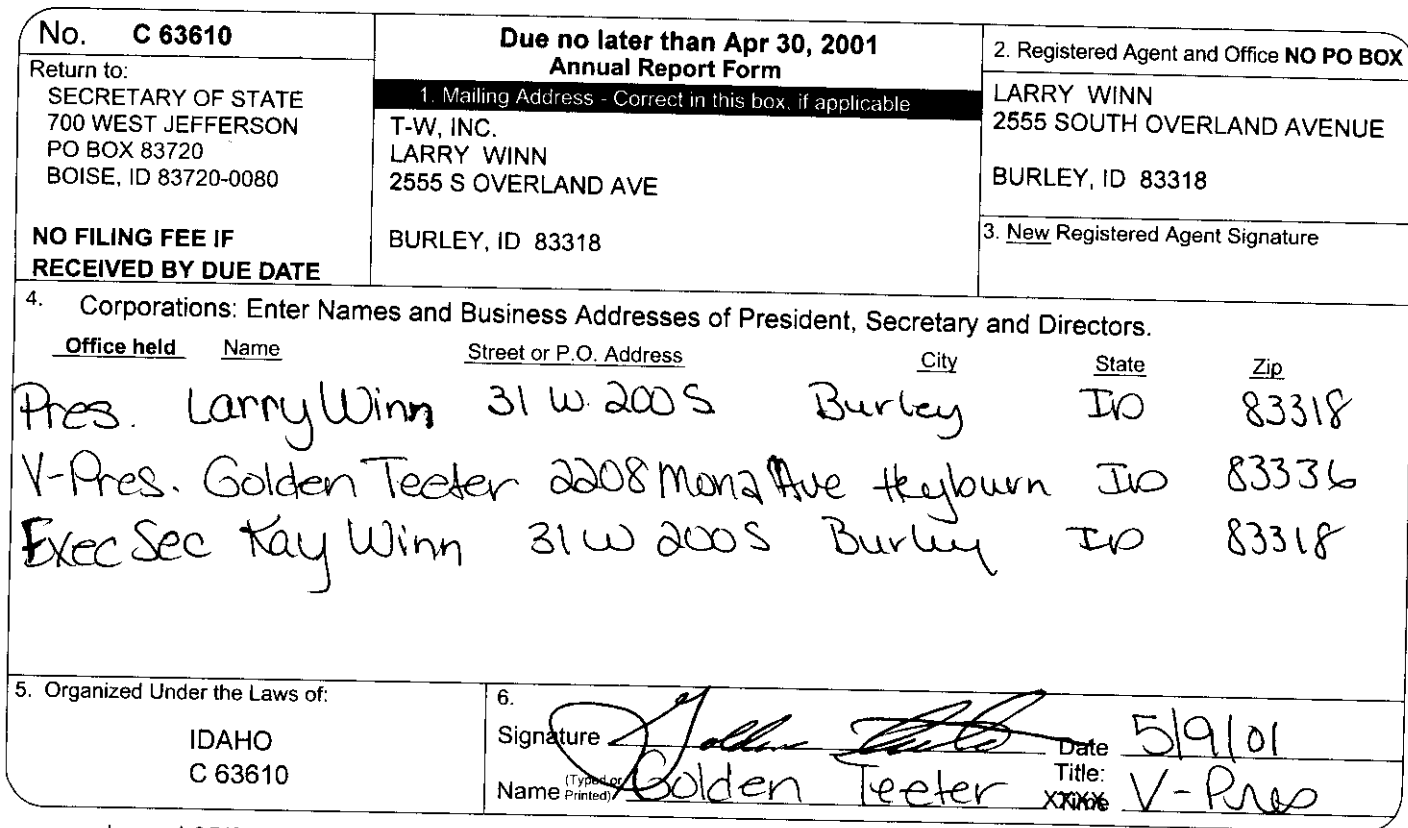 No. C 63610
Return to:
SECRETARY OF STATE
700 WEST JEFFERSON
PO BOX 83720
BOISE, ID 83720-0080
NO FILING FEE IF
RECEIVED BY DUE DATE
Due no later than Apr 30, 2001
Annual Report Form
1. Mailing Address - Correct in this box, if applicable
T-W, INC.
LARRY WINN
2555 S OVERLAND AVE
BURLEY, ID 83318
2. Registered Agent and Office NO PO BOX
LARRY WINN
2555 SOUTH OVERLAND AVENUE
BURLEY, ID 83318
3. New Registered Agent Signature
4. Corporations: Enter Names and Business Addresses of President, Secretary and Directors.
Office held Name Street or P.O. Address City State Zip
Pres. Larry Winn 31 W. 200 S Burley ID 83318
V-Pres. Golden Teeter 2208 Mona Ave Heyburn ID 83336
Exec Sec Kay Winn 31 W 200 S Burley ID 83318
5. Organized Under the Laws of:
IDAHO
C 63610
6.
Signature Golden Teeter Date 5/9/01
Name (Typed or Printed) Golden Teeter Title: V-Pres